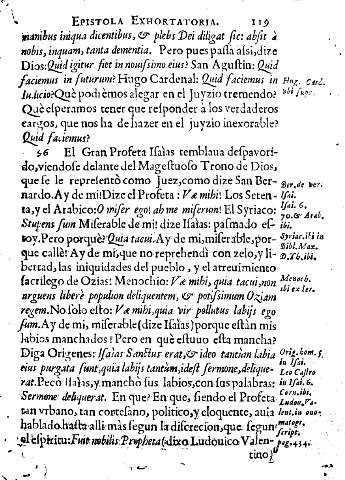 EPISTOLA EXHORTATORIA. 119
manibus iniqua dicentibus, & plebis Dei diligat sic: absit à
nobis, inquam, tanta dementia. Pero pues passa assi, dize
Dios: Quid igitur fiet in novissimo eius? San Agustin: Quid
faciemus in futurum? Hugo Cardenal: Quid faciemus in
Iudicio? Què podrèmos alegar en el Juyzio tremendo?
Què esperamos tener que responder à los verdaderos
cargos, que nos ha de hazer en el juyzio inexorable?
Quid faciemus?
Hug. Card.
vbi supr.
56 El Gran Profeta Isaìas temblaua despavori-
do, viendose delante del Magestuoso Trono de Dios,
que se le representò como Juez, como dize San Ber-
nardo. Ay de mi! Dize el Profeta: Væ mihi! Los Seten-
ta, y el Arabico: O miser ego! ah me miserum! El Syriaco:
Stupens sum Miserable de mi! dize Isaìas: pasmado es-
toy. Pero porquè? Quia tacui. Ay de mi, miserable, por-
que callè! Ay de mi, que no reprehendì con zelo, y li-
bertad, las iniquidades del pueblo, y el atrevimiento
sacrilego de Ozias! Menochio: Væ mihi, quia tacui, non
arguens liberè populum deliquentem, & potissimum Oziam
regem. No solo esto: Væ mihi, quia vir pollutus labijs ego
sum. Ay de mi, miserable (dize Isaìas) porque estàn mis
labios manchados! Pero en què estuuo esta mancha?
Diga Origenes: Isaias Sanctus erat, & ideo tantùm labia
eius purgata sunt, quia labijs tantùm, idest sermone, delique-
rat. Pecò Isaìas, y manchò sus labios, con sus palabras:
Sermone deliquerat. En que? En que, siendo el Profeta
tan vrbano, tan cortesano, politico, y eloquente, auia
hablado hasta alli màs segun la discrecion, que segun
el espiritu: Fuit nobilis Propheta (dixo Ludouico Valen-
tino)
Ber. de ver.
Isai.
Isai. 6.
70. & Arab.
ibi.
Syriac. ibi in
Bibl. Max.
D. Th. ibi.
Menoch.
ibi ex Ier.
Orig. hom. 5.
in Isai.
Leo Castro
in Isai. 6.
Corn. ibi.
Ludou. Va-
lent. in
matogr.
script.
pag. 434.